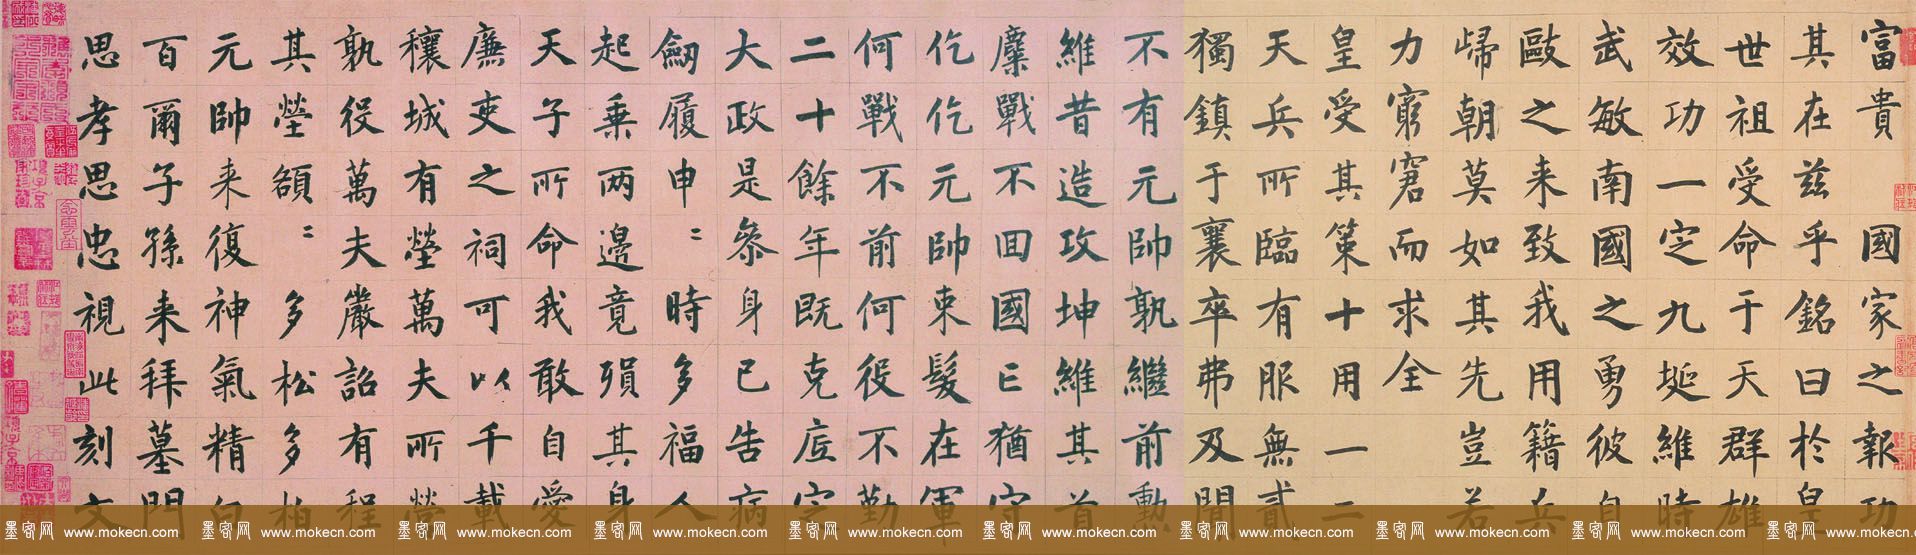 富貴 國家之報功
其在茲乎銘曰於皇
世祖受命于天群雄
效功一定九埏維時
武敏南國之勇彼自
歐之来致我用籍兵
歸朝莫如其先豈若
力窮窘而求全
皇受其策十用一二
天兵所臨有服無貳
獨鎮于襄卒弗及聞
不有元帥孰繼前勳
維昔造攻坤維其首
麋戰不回國亡猶守
仡仡元帥束髮在軍
何戰不前何役不勤
二十餘年既克底定
大政是叅身已告病
劒履申〻時多福人
起乗兩邊竟殞其身
天子所命我敢自愛
廉吏之祠可以千載
穰城有塋萬夫所營
孰役萬夫嚴詔有程
其塋額〻多松多柏
元帥来復神氣精白
百爾子孫来拜墓門
思孝思忠視此刻文
墨客网 www.mokecn.com 墨客网 www.mokecn.com 墨客网 www.mokecn.com 墨客网 www.mokecn.com 墨客网 www.mokecn.com 墨客网 www.mokecn.com 墨客网 www.mokecn.com 墨客网 www.mokecn.com 墨客网 www.mokecn.com 墨客网 www.mokecn.com